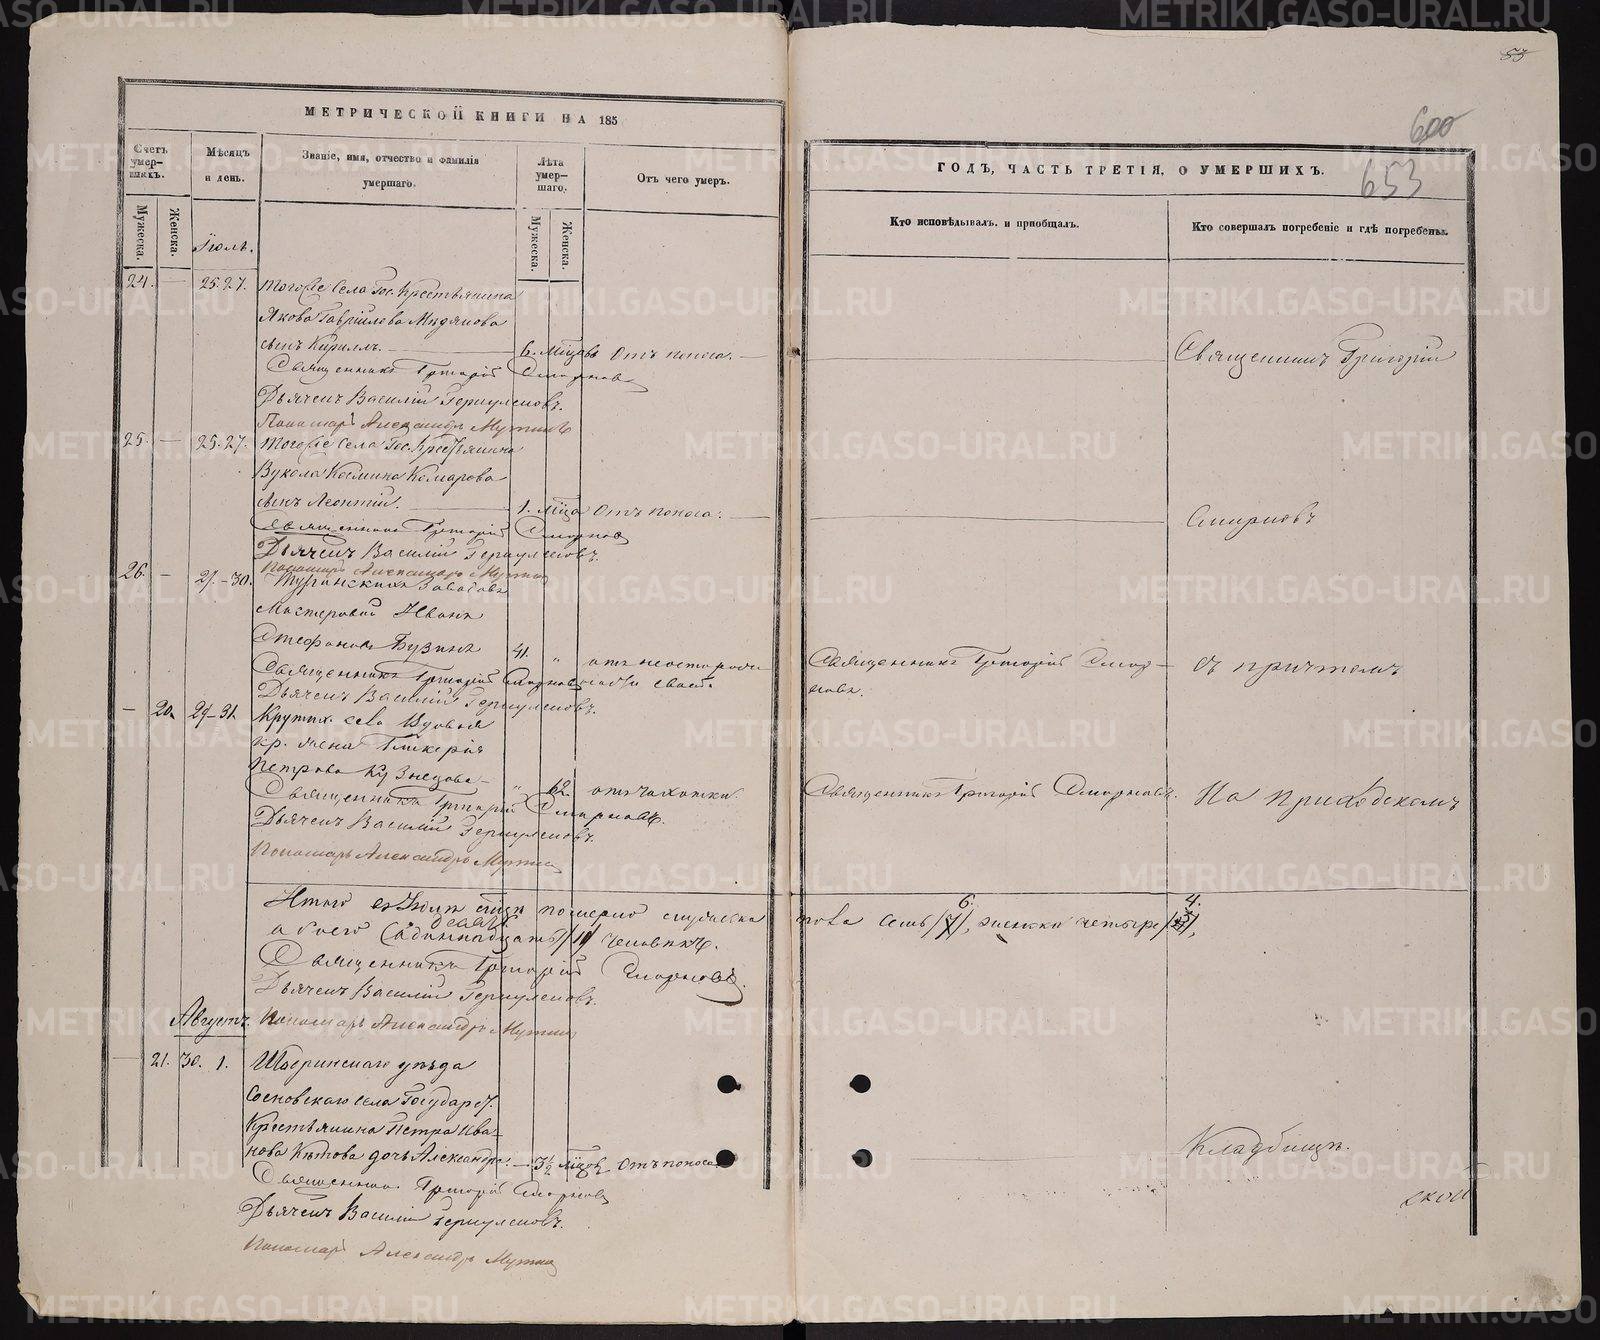 МЕТРИЧЕСКОЙ КНИГИ НА 185
Счетъ умер-шихъ.
Мѣсяцъ и день.
Званіе, имя, отчество и фамилія умершаго.
Лѣта умер-шаго.
Отъ чего умеръ.
Мужеска.
Женска.
Мужеска.
Женска.
Іюль.
24. — 25. 27. Тогоже Села Гос. Крестьянина
Якова Гаврилова Медянова
сынъ Кириллъ. 6. мѣцовъ Отъ поноса.
Священникъ Григорій Смирновъ
Дьячекъ Василій Геркулесовъ.
Пономарь Александръ Мутинъ
25. — 25. 27. Тогоже Села Гос. Крестьянина
Вукола Космина Комарова
сынъ Леонтій. 1. мѣца Отъ поноса.
Священникъ Григорій Смирновъ
Дьячекъ Василій Геркулесовъ.
Пономарь Александръ Мутинъ
26. — 27.-30. Заводовъ
Мастеровой Иванъ
Стефановъ Бузинъ 41. " отъ неосторож
Священникъ Григорій Смирновъ
Дьячекъ Василій Геркулесовъ.
— 20. 29-31. Крутих. села вдовья
кр. жена Гликерія
Петрова Кузнецова " 62. отъ чахотки.
Священникъ Григорій Смирновъ.
Дьячекъ Василій Геркулесовъ.
Пономарь Александръ Мутинъ
Итого въ Іюлѣ мѣцѣ померло мужеска
обоего одиннадцать /11/ человѣкъ.
Священникъ Григорій Смирновъ.
Дьячекъ Василій Геркулесовъ.
Августъ. Пономарь Александръ Мутинъ
— 21. 30. 1. уѣзда
Сосновскаго села Государст.
Крестьянина Петра Ива-
нова Кѣтова дочь Александра. 3½ мѣцовъ Отъ поноса.
Священникъ Григорій Смирновъ
Дьячекъ Василій Геркулесовъ.
Пономарь Александръ Мутинъ
53
600
653
ГОДЪ, ЧАСТЬ ТРЕТІЯ, О УМЕРШИХЪ.
Кто исповѣдывалъ и пріобщалъ.
Кто совершалъ погребеніе и гдѣ погребены.
Священникъ Григорій
Смирновъ
Священникъ Григорій Смир-
новъ.
съ причтомъ
Священникъ Григорій Смирновъ.
На приходскомъ
6. 4.
пола семь /7/, женска четыре
Кладбищѣ.
METRIKI.GASO-URAL.RU